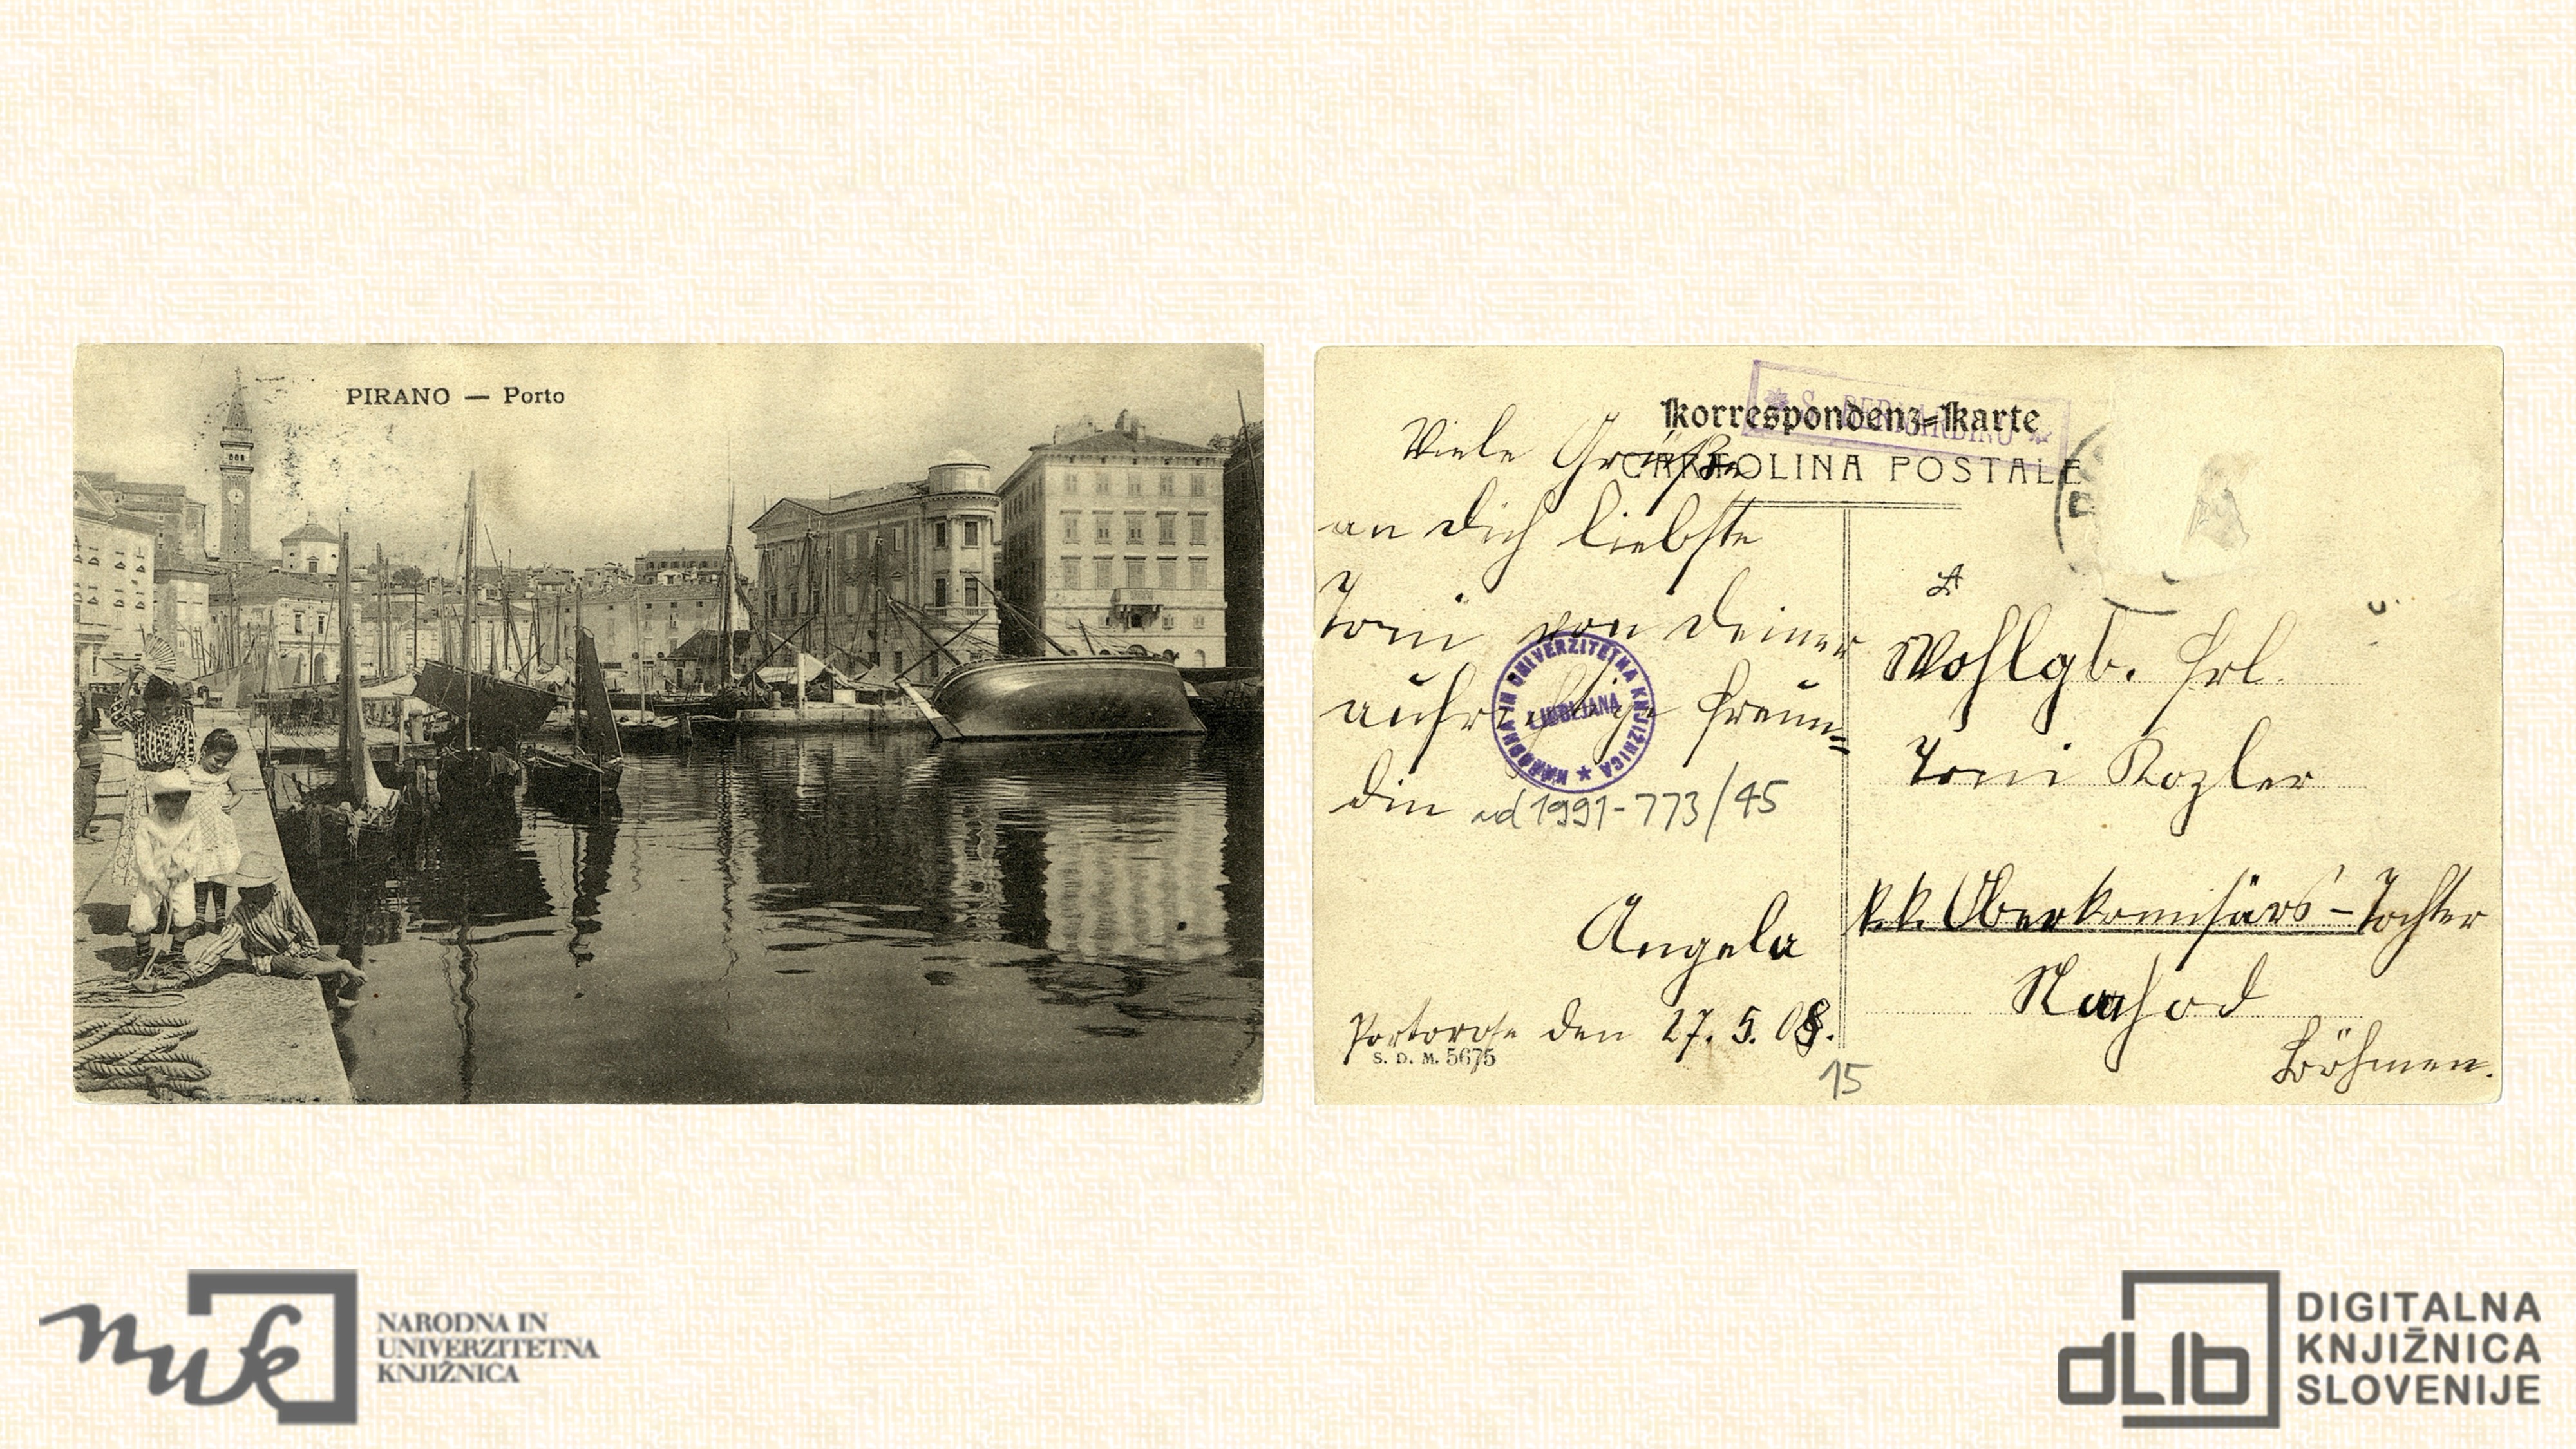 PIRANO — Porto
Korrespondenz-Karte
CARTOLINA POSTALE
Viele Grüße
an Dich liebste
Toni von Deiner
aufrichtige Freun=
din
ad 1991-773/45
Angela
Portorose den 27. 5. 08.
S. D. M. 5675
15
NARODNA IN UNIVERZITETNA KNJIŽNICA ★
LJUBLJANA
Wohlgb. Frl.
Toni Kozler
k.k. Oberkomisärs-Tochter
Nachod
Böhmen.
nuk
NARODNA IN
UNIVERZITETNA
KNJIŽNICA
dLIb
DIGITALNA
KNJIŽNICA
SLOVENIJE